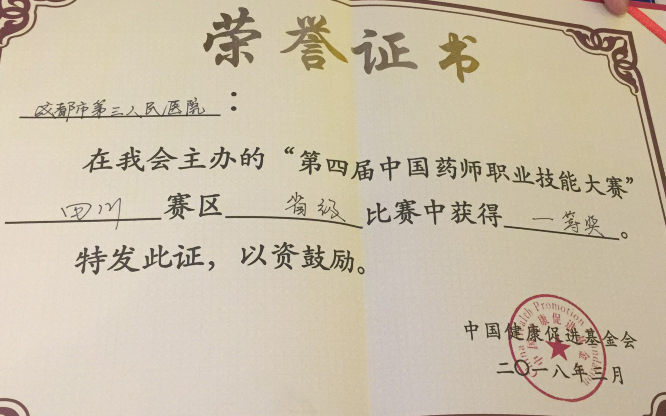 荣誉证书
成都市第三人民医院：
在我会主办的“第四届中国药师职业技能大赛”
四川赛区省级比赛中获得一等奖。
特发此证，以资鼓励。
中国健康促进基金会
China Health Promotion Foundation
中国健康促进基金会
二〇一八年三月